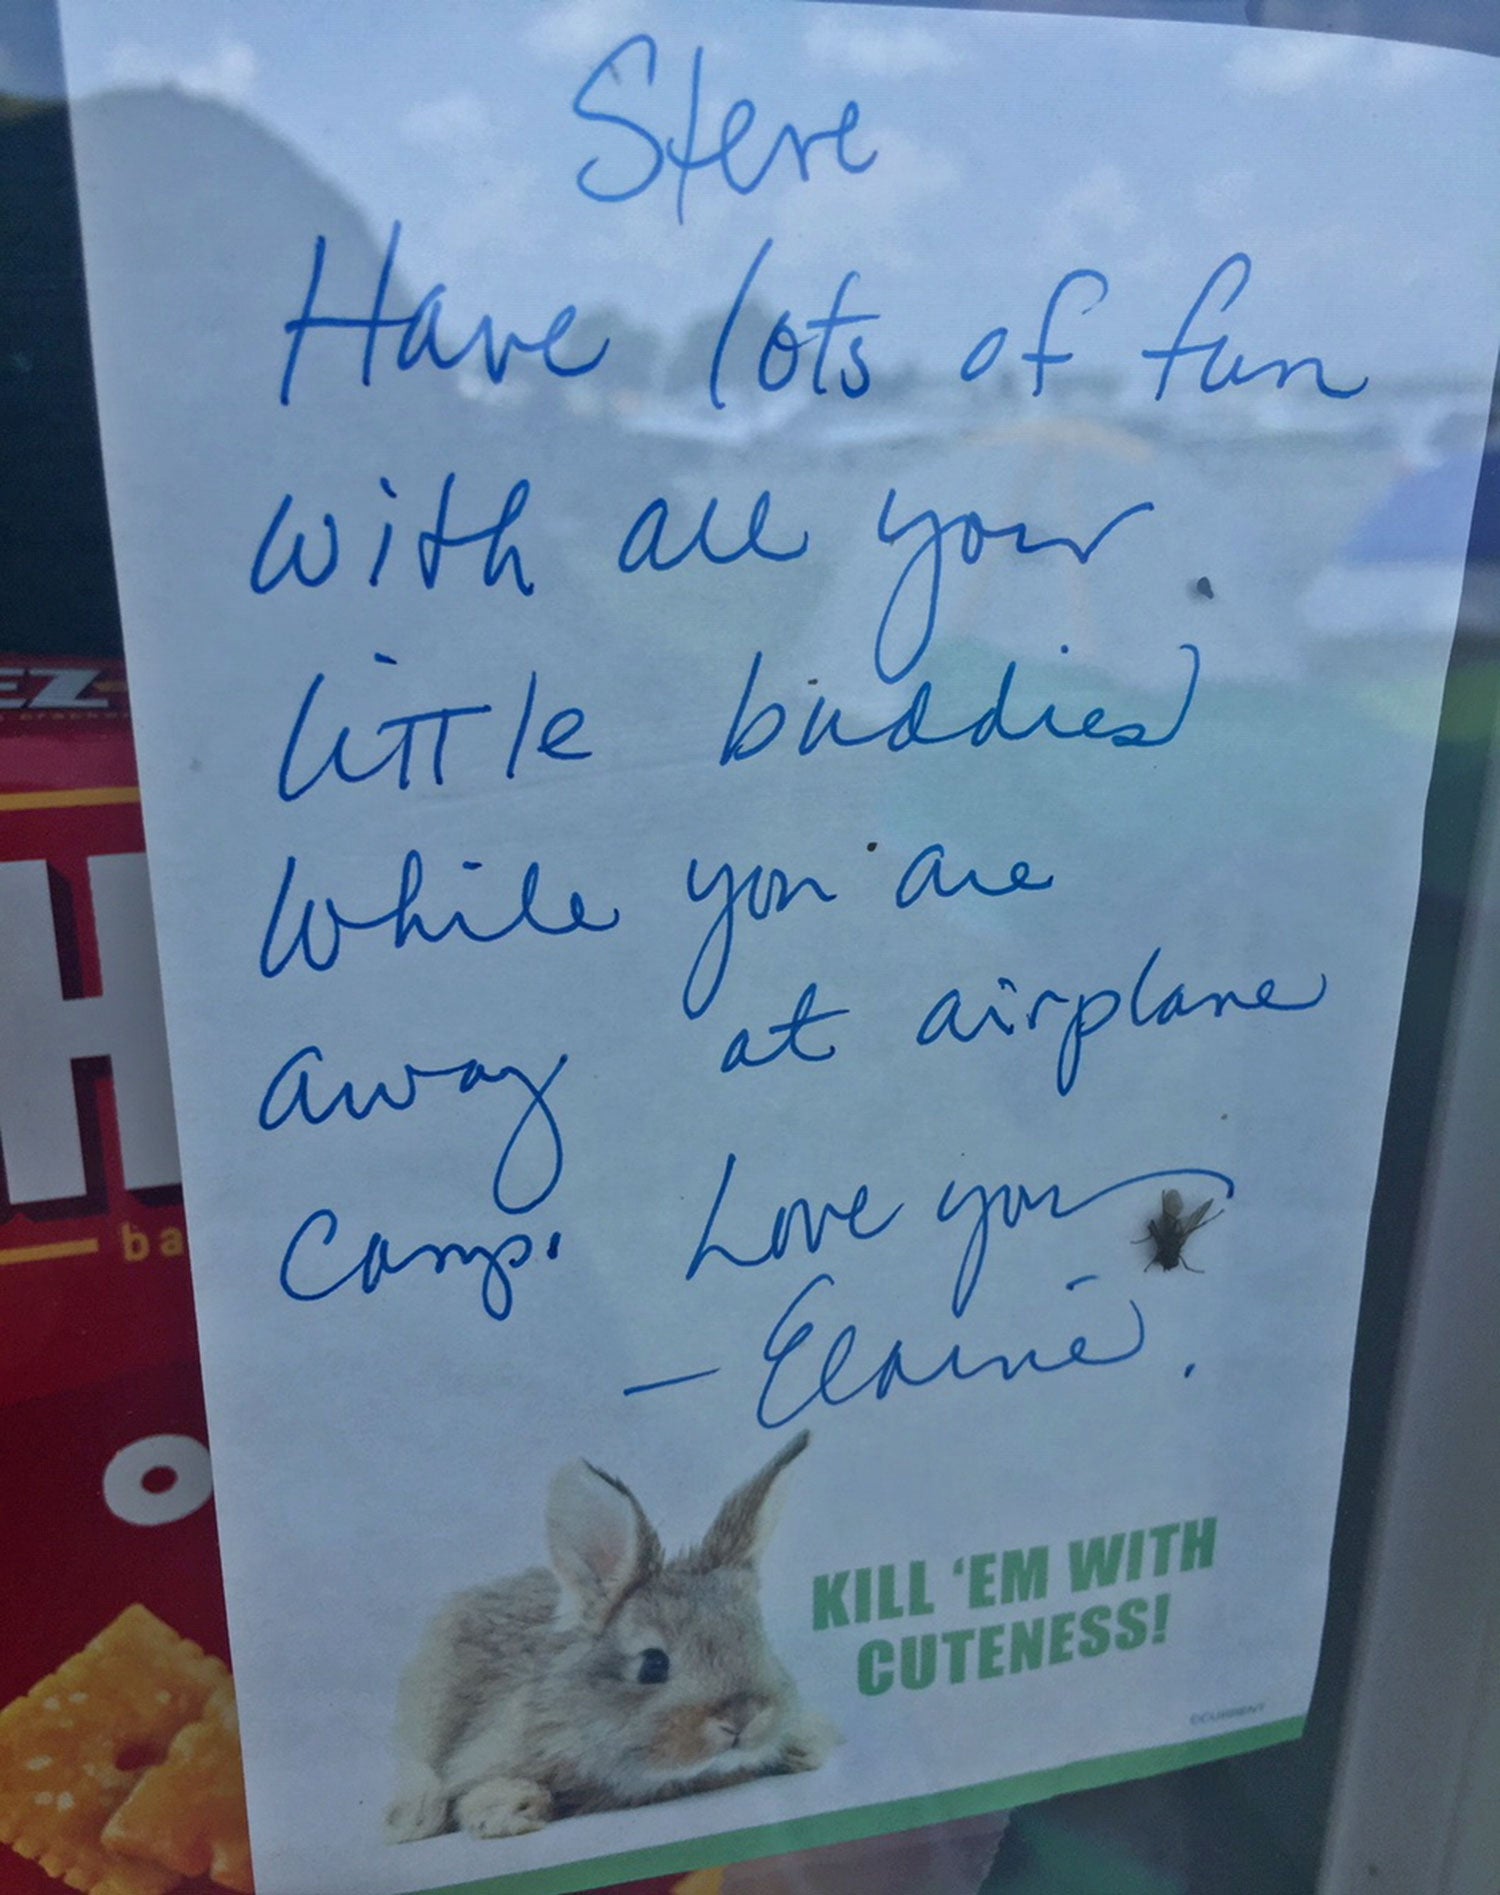 Steve
Have lots of fun
with all your
little buddies
While you are
away at airplane
Camp. Love you
– Elaine.
KILL ‘EM WITH
CUTENESS!
©CURRENT
EZ
H
ba
O